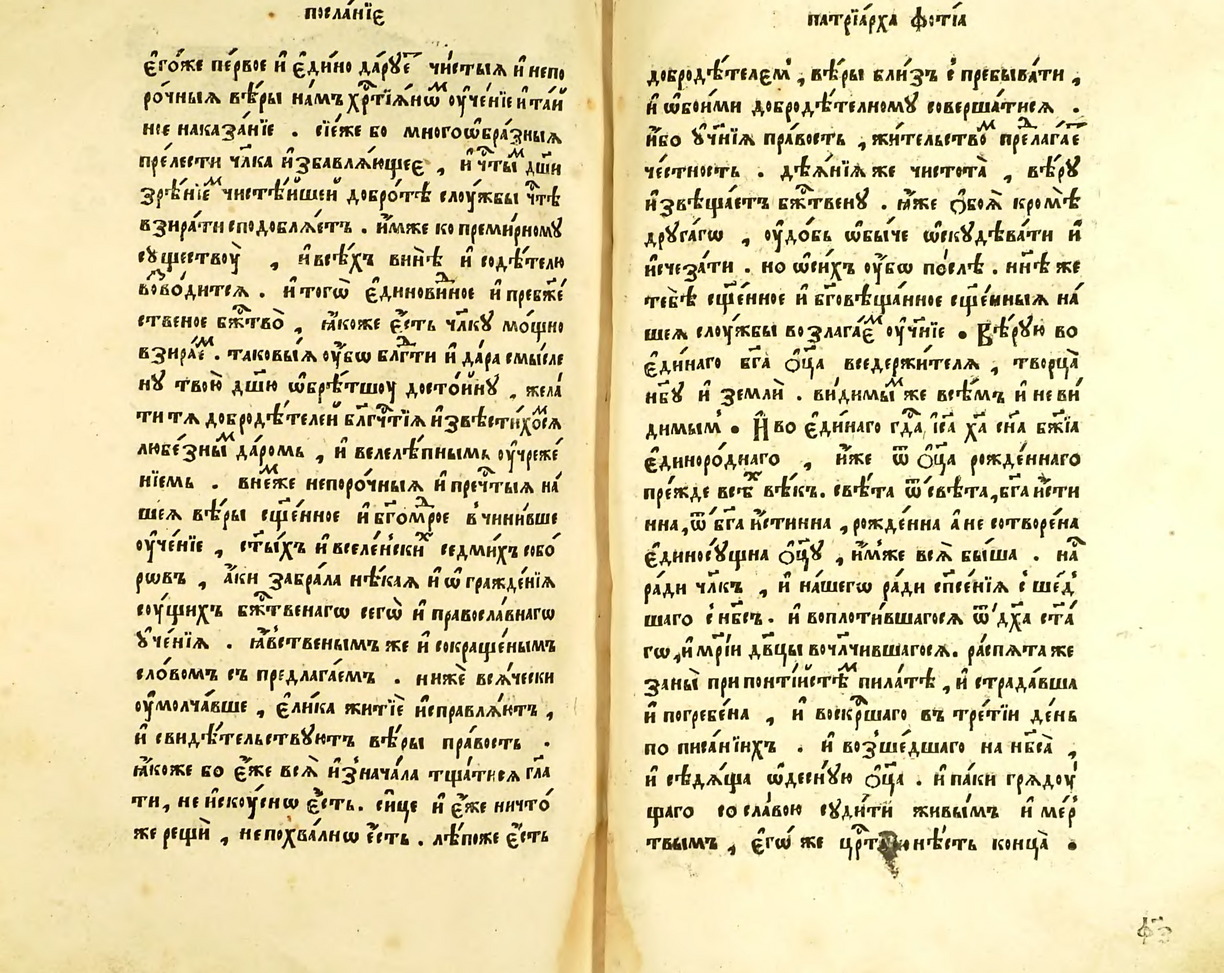 посла́нїє
є҆го́же пе́рвое и҆ є҆ди́но да́рꙋеⷮ чи́стыѧ и҆ непо
ро́чныѧ вѣ́ры на́мъ хрⷭ҇тїѧ́нѡⷨ оу҆че́нїе и҆ та́и҆
ное наказа́нїе . сїе́же бо многоѡбра́зныѧ
пре́лести чл҃ка и҆збавлѧ́ющеє , и҆ чⷭ҇тыⷨ дш҃и
зрѣ́нїеⷨ чистѣ́йшей добро́тѣ слоу́жбы чⷭ҇тѣ
взира́ти сподоблѧ́етъ . и҆́мже ко преми́рномꙋ
сꙋществоу̀ , и҆ всѣ́хъ винѣ̀ и҆ содѣ́телю
возво́дитсѧ . и҆ того̀ є҆динови́дное и҆ пребж҃е́
ственое бж҃тво̀ , ꙗ҆́коже є҆́сть чл҃кꙋ мо́щно
взира́еⷨ . таковы́ѧ оу҆́бѡ блгⷣти и҆ да́ра смы́сле
нꙋ твою̀ дш҃ю ѡ҆брѣ́тшоу досто́йнꙋ , жела́
ти тѧ добродѣ́телей блгⷭ҇тїѧ и҆звѣсти́хоⷨсѧ
любе́зныⷨ да́ромь , и҆ велелѣ́пнымь оу҆чреже́
нїемь . вне́же непоро́чныѧ и҆ пречⷭ҇тыѧ на́
шеѧ вѣ́ры сщ҃е́нное и҆ бг҃омⷣрое вчини́вше
оу҆че́нїе , ст҃ы́хъ и҆ вселе́нскиⷯ седми́хъ собо́
рѡвъ , а҆́ки забра́ла нѣ́каѧ и҆ ѡ҆гражде́нїѧ
соу́щихъ бжⷭ҇твенагѡ сегѡ̀ и҆ правосла́внагѡ
ꙋ҆че́нїѧ . ꙗ҆́вственымъ же и҆ сокраще́нымъ
сло́вомъ съ предлага́емъ . нижѐ всѧ́чески
оу҆молча́вше , є҆ли́ка житїѐ и҆справлѧ́ютъ ,
и҆ свидѣ́тельствꙋютъ вѣ́ры пра́вость .
ꙗ҆́коже бо є҆́же всѧ̀ и҆знача́ла тща́тисѧ гла
ти, не и҆скоу́снѡ є҆́сть. си́це и҆ є҆́же ничто́
же рещѝ , непохва́лнѡ є҆́сть . лѣ́поже є҆́сть
патрїа́рха фѡтїа
добродѣ́телем̾ , вѣ́ры бли́зъ є҆̀ пребыва́ти ,
и҆ ѡ҆бои́ми добродѣ́телномꙋ соверша́тисѧ .
и҆́бо ꙋ҆ч҃нїѧ пра́вость , жи́тельствоⷨ пре́длагаⷷ
че́стность . дѣѧ́нїѧ же чистота̀ , вѣ́рꙋ
и҆звѣща́етъ бжⷭ҇твенꙋ . ꙗ҆́же ѻ҆боѧ̀ кромѣ̀
дрꙋга́гѡ , оу҆до́бь ѡ҆бы́че ѡ҆скꙋдѣва́ти и҆
и҆счеза́ти . но ѡ҆си́хъ оу҆́бѡ по́слѣ . нн҃ѣ же
тебѣ̀ сщ҃е́нное и҆ бг҃овѣща́нное сщ҃е́нныѧ на́
шеѧ слоу́жбы возлага́еⷨ оу҆ч҃нїе . Вѣ́рꙋю во
є҆ди́наго бг҃а ѻ҆ц҃а вседержи́телѧ , творца̀
нб҃ꙋ и҆ землѝ . ви́димыⷨ же всѣ́мъ и҆ неви́
димым̾ . И҆ во є҆ди́наго гдⷭ҇а і҆с҃а хⷭ҇а сн҃а бж҃їа
є҆диноро́днаго , и҆́же ѿ ѻ҆ц҃а рожде́ннаго
пре́жде всѣⷯ вѣ́къ. свѣ́та ѿ свѣ́та, бг҃а и҆́сти
нна, ѿ бг҃а и҆́стинна , рожде́нна а҆ не сотворе́на
є҆диносꙋ́щна ѻ҆ц҃ꙋ , и҆́мже всѧ̀ бы́ша . наⷭ҇
ра́ди чл҃къ , и҆ на́шегѡ ра́ди сп҃се́нїѧ сше́д̾
шаго с нб҃съ. и҆ воплоти́вшагосѧ ѿ дх҃а ст҃а́
гѡ, и҆ мр҃і́и дв҃цы вочл҃чи́вшагосѧ. распѧ́та же
за ны̀ при понті́йстѣⷨ пила́тѣ , и҆ страда́вша
и҆ погребе́на , и҆ воскрⷭ҇шаго въ тре́тїи де́нь
по писа́нїихъ . и҆ возше́дшаго на нб҃са̀ ,
и҆ сѣдѧ́ща ѡ҆деснꙋ́ю ѻ҆ц҃а . и҆ па́ки грѧдоу́
щаго со сла́вою сꙋди́ти живы́мъ и҆ ме́р̾
твымъ , є҆гѡ́ же црⷭ҇твїю нѣ́сть конца̀ .